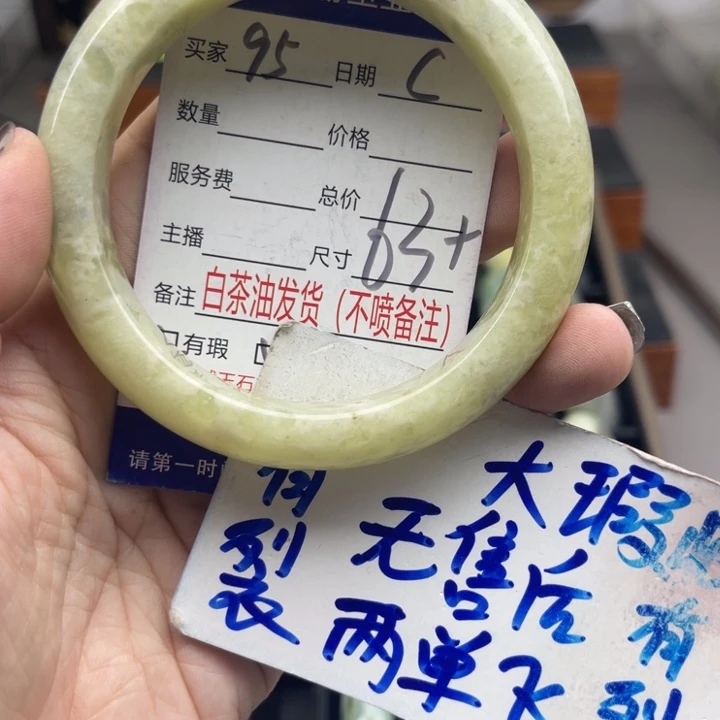 买家 95 日期 C
数量 价格
服务费 总价 13
主播 尺寸 63+
备注 白茶油发货（不喷备注）
有瑕
玉石
请第一时
大瑕
有裂 无售后 有裂
两单飞